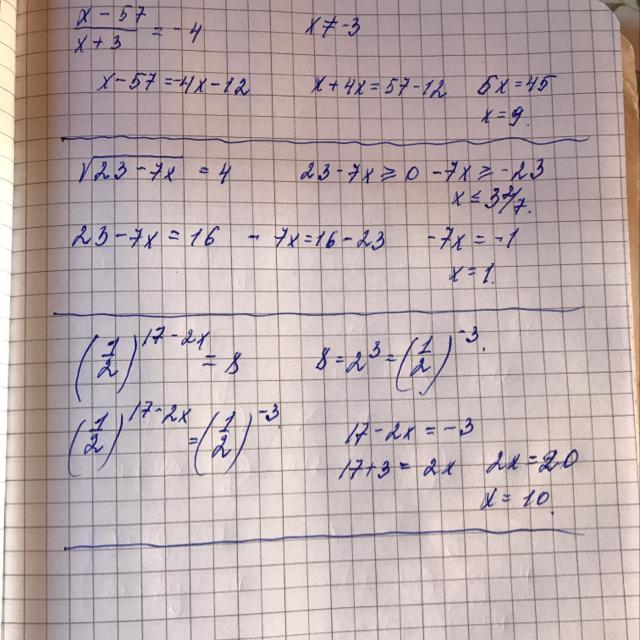 (x-57)/(x+3) = -4 x≠-3
x-57=-4x-12 x+4x=57-12 5x=45
x=9.
√(23-7x) = 4 23-7x≥0 -7x≥-23
x≤3 2/7.
23-7x=16 -7x=16-23 -7x=-1
x=1.
(1/2)^(17-2x) = 8 8=2^3=(1/2)^(-3).
(1/2)^(17-2x) = (1/2)^(-3) 17-2x=-3
17+3=2x 2x=20
x=10.